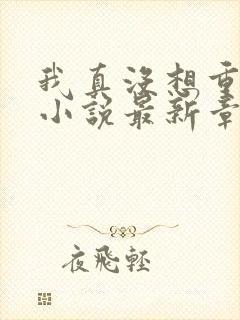 我真沒想重
小說最新章
夜飛輕